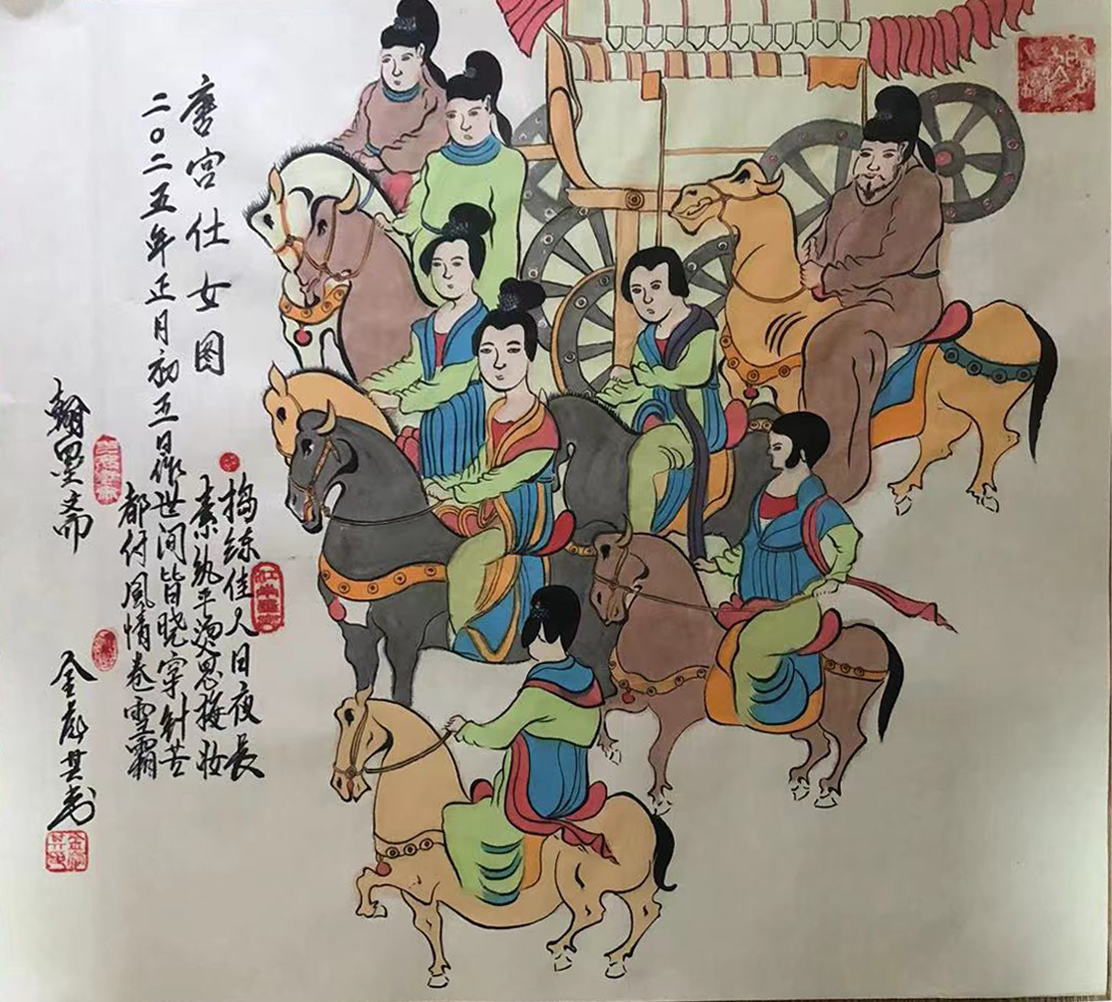 唐宫仕女图
二〇二五年正月初五日作
捣练佳人日夜长
素纨平烫思接妆
世间皆晓穿针苦
都付風情卷雪霜
翰墨斋
金彪其